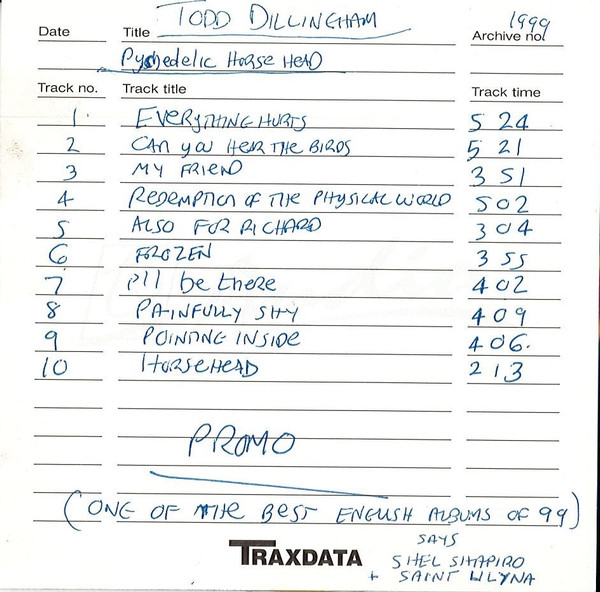 TODD DILLINGHAM 1999
Date Title Archive no.
Pychedelic HORSE HEAD
Track no. Track title Track time
1 EVERYTHING HURTS 5 24
2 CAN YOU HEAR THE BIRDS 5 21
3 MY FRIEND 3 51
4 REDEMPTION OF THE PHYSICAL WORLD 5 02
5 ALSO FOR RICHARD 3 04
6 FROZEN 3 55
7 I'll be there 4 02
8 PAINFULLY SHY 4 09
9 POINTING INSIDE 4 06.
10 HORSEHEAD 2 13
PROMO
(ONE OF THE BEST ENGLISH ALBUMS OF 99)
SAYS
TRAXDATA
SHEL SHAPIRO
+ SAINT